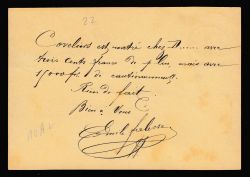 22
Coveliers est rentré chez Thum. avec
trois cents francs de plus, mais avec
15000 frs de cautionnement.
Rien de fait.
Bien à vous
Emile